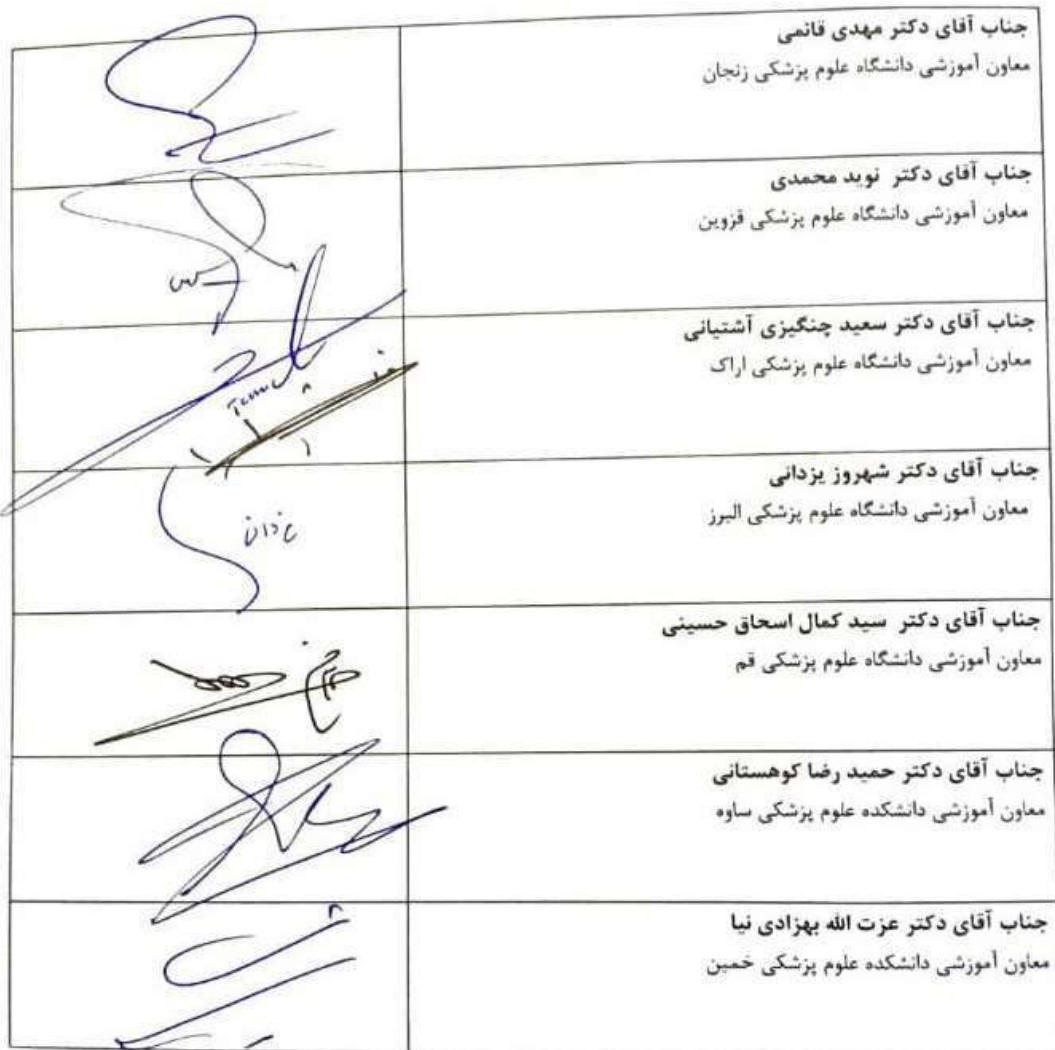 جناب آقای دکتر مهدی قائمی
معاون آموزشی دانشگاه علوم پزشکی زنجان
جناب آقای دکتر نوید محمدی
معاون آموزشی دانشگاه علوم پزشکی قزوین
جناب آقای دکتر سعید چنگیزی آشتیانی
معاون آموزشی دانشگاه علوم پزشکی اراک
جناب آقای دکتر شهروز یزدانی
معاون آموزشی دانشگاه علوم پزشکی البرز
جناب آقای دکتر سید کمال اسحاق حسینی
معاون آموزشی دانشگاه علوم پزشکی قم
جناب آقای دکتر حمید رضا کوهستانی
معاون آموزشی دانشکده علوم پزشکی ساوه
جناب آقای دکتر عزت الله بهزادی نیا
معاون آموزشی دانشکده علوم پزشکی خمین